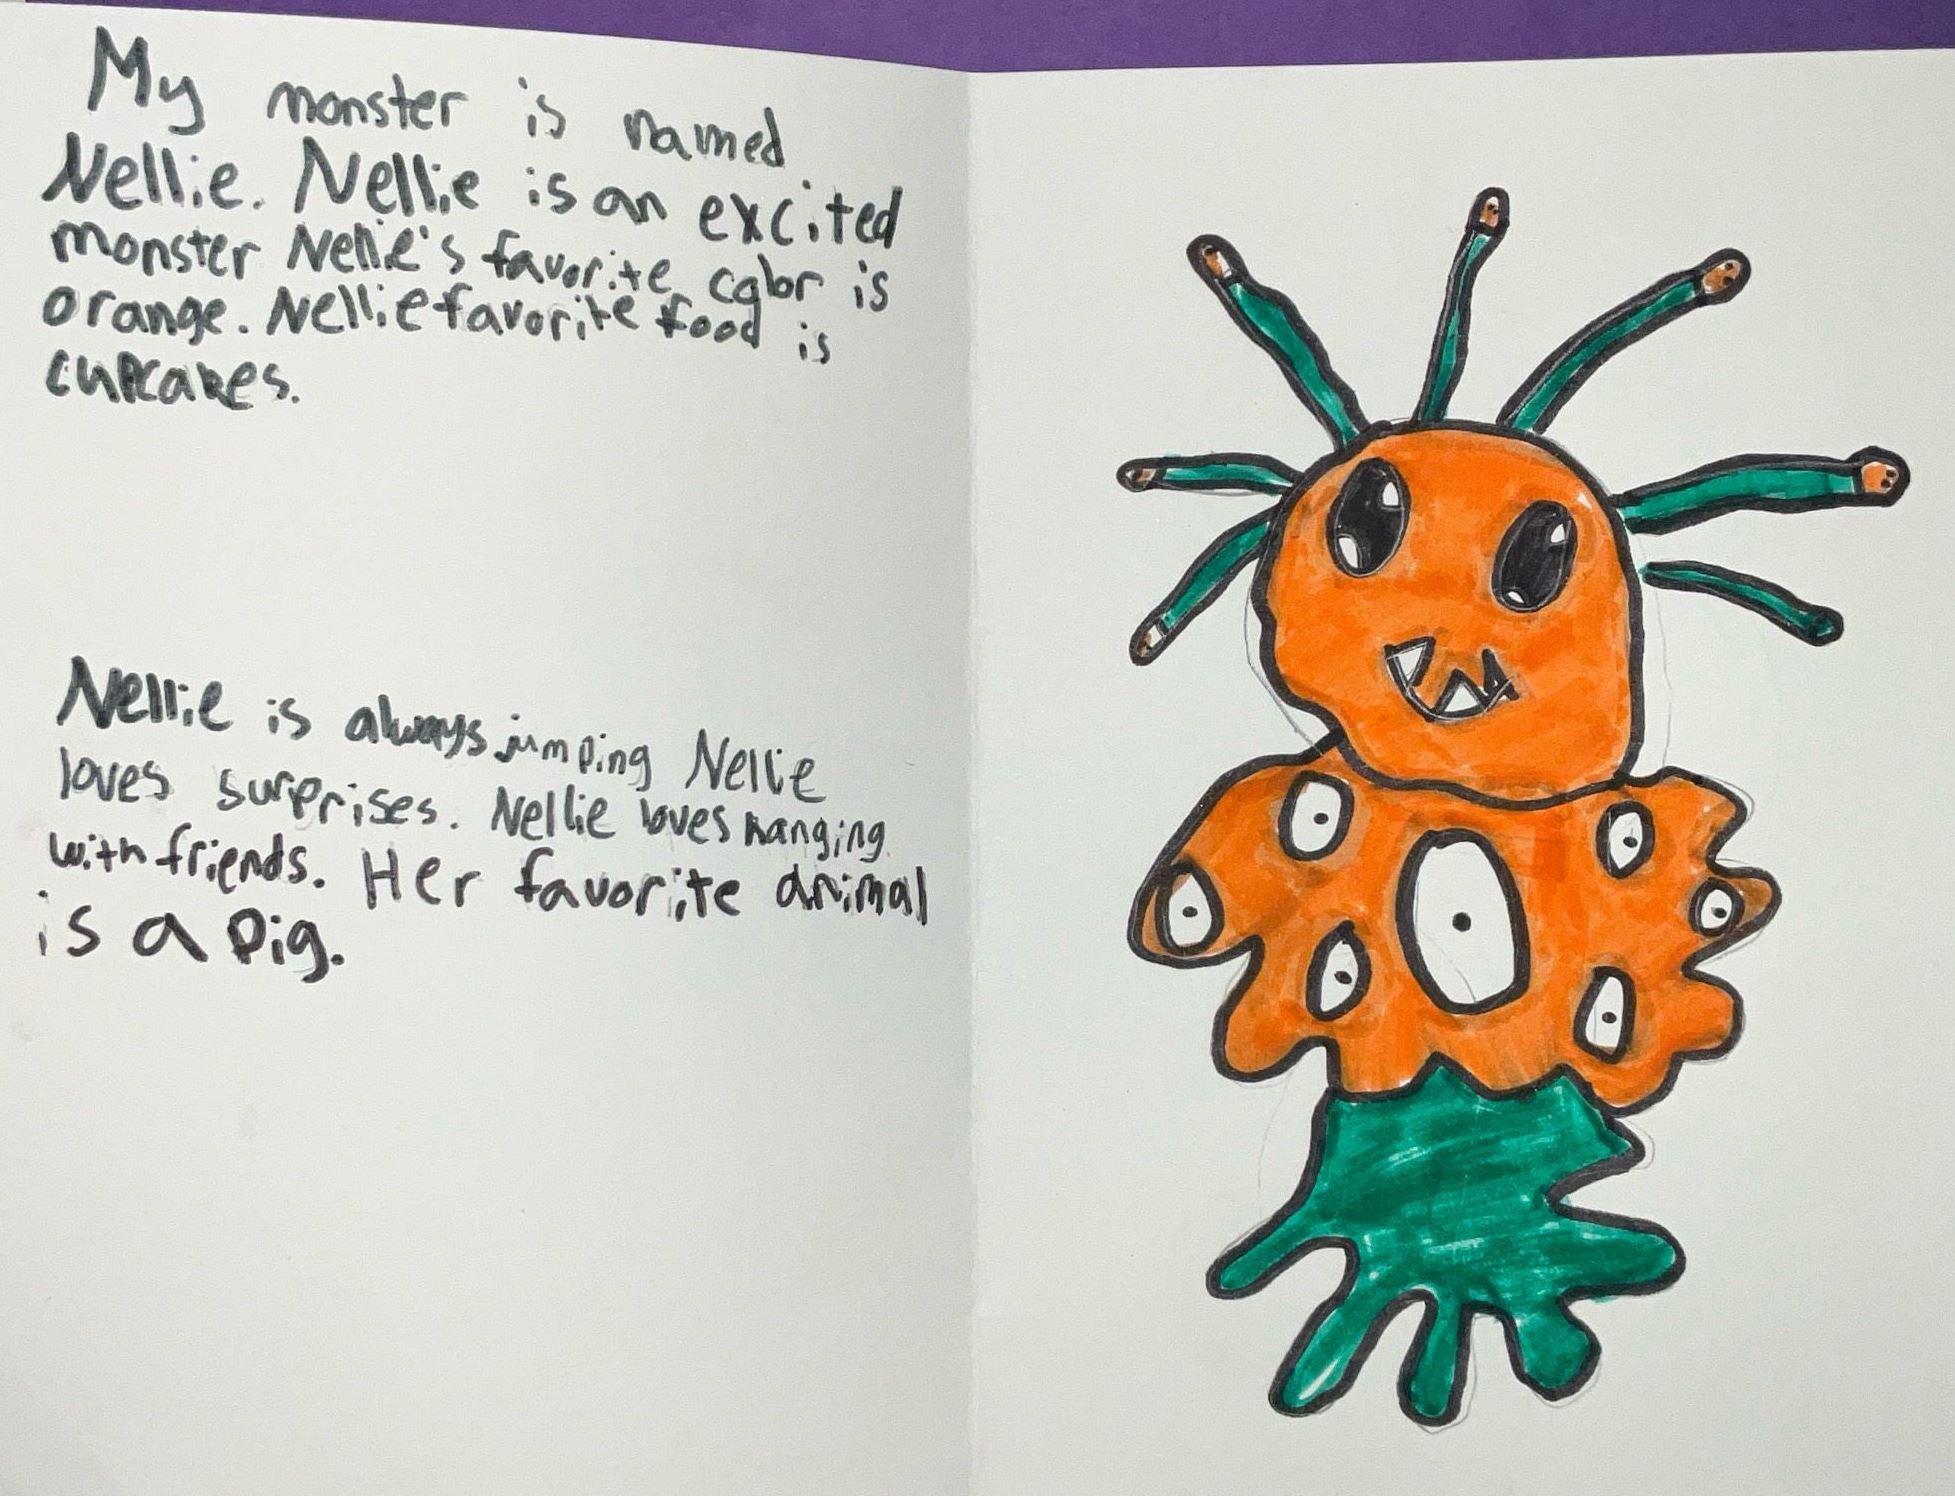 My monster is named
Nellie. Nellie is an excited
monster Nellie's favorite color is
orange. Nellie favorite food is
cupcakes.
Nellie is always jumping Nellie
loves surprises. Nellie loves hanging
with friends. Her favorite animal
is a pig.